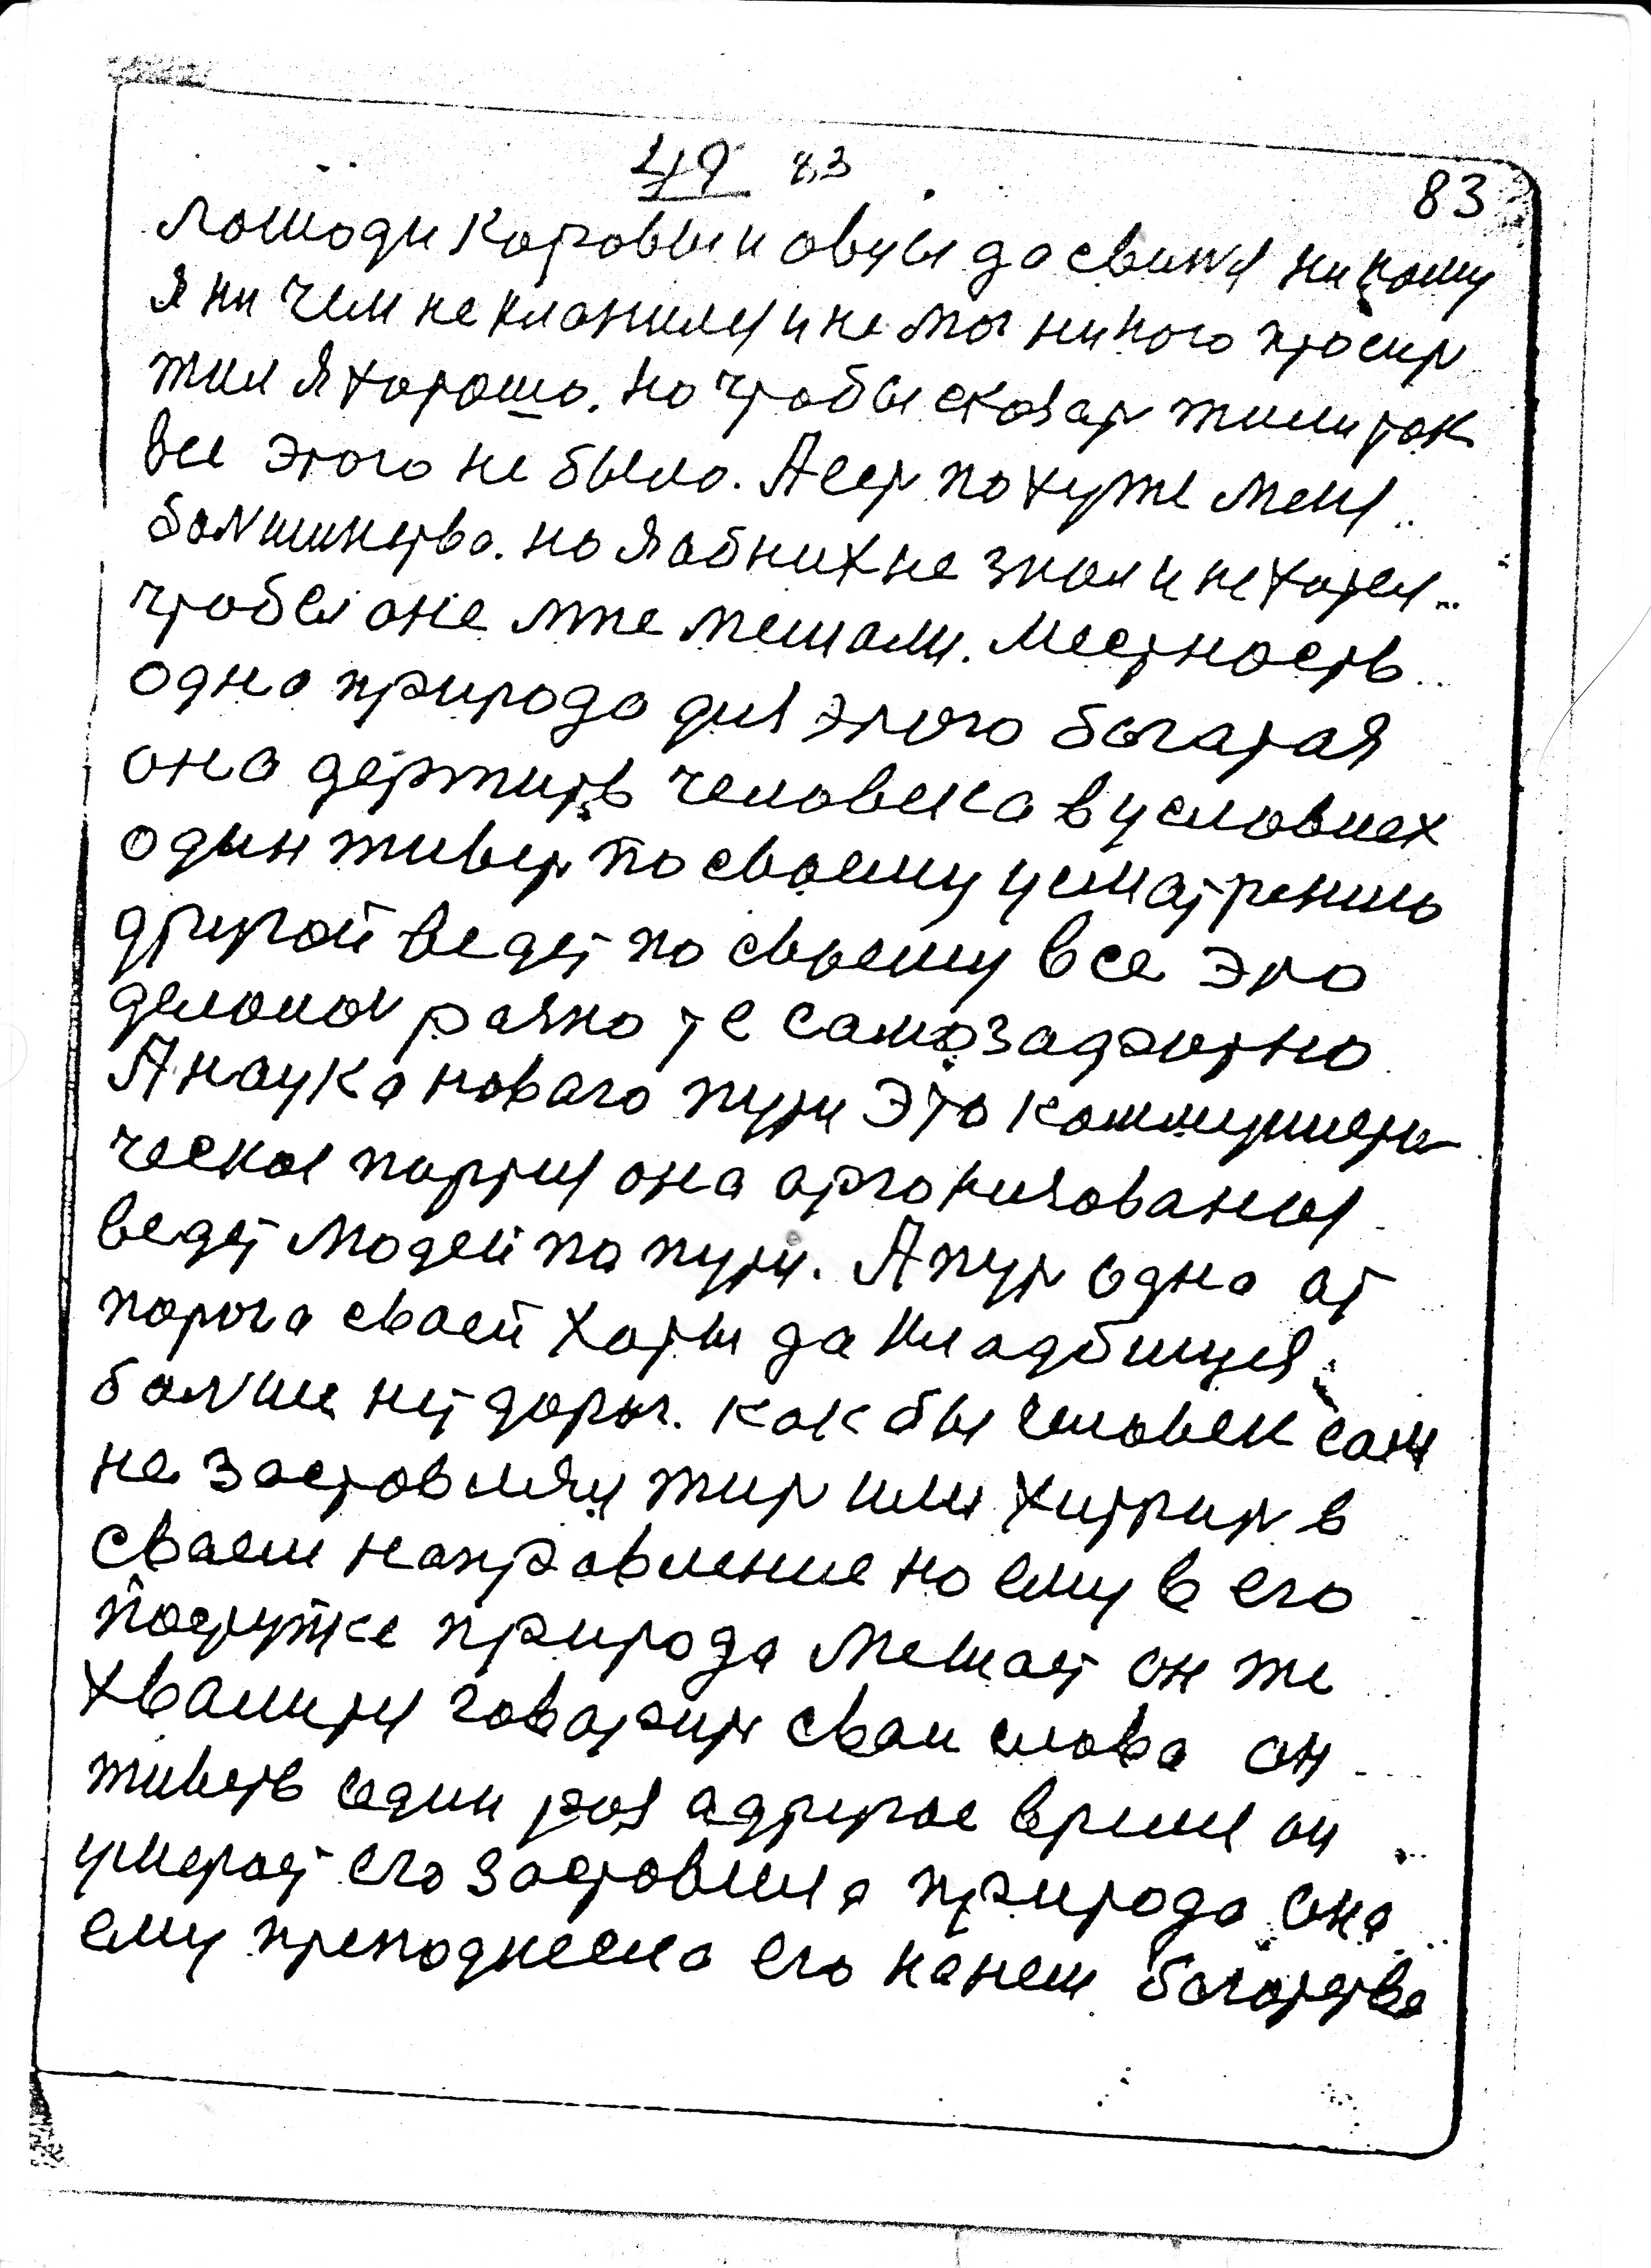 49 83
83
лошоди коровы и овцы да свиня никому
я ни чем не кланился и не мог никого просит
жил я хорошо. но чтобы сказат жили так
все этого не было. А ест похуже меня
большинство. но я об них не знал и не хател
чтобы оне мне мешали. местность
одна природа для этого багатая
она держить человека в условиех
один живет по своему усматрению
другой ведет по своему все это
делолось разно те само задротно
А наука новаго пути это коммунисти
ческоя партия она арганизования
ведет людей по пути. А пут одна ат
порога сваей хаты да кладбищя
болше нет дорог. как бы человек сам
не заставляу жит или хитрит в
сваем направление но ему в его
поступке природа мешает он же
хвалится говарит сваи слова он
живеть один раз а другое время он
умерает его заставила природа она
ему преподнесла его на нем богатства